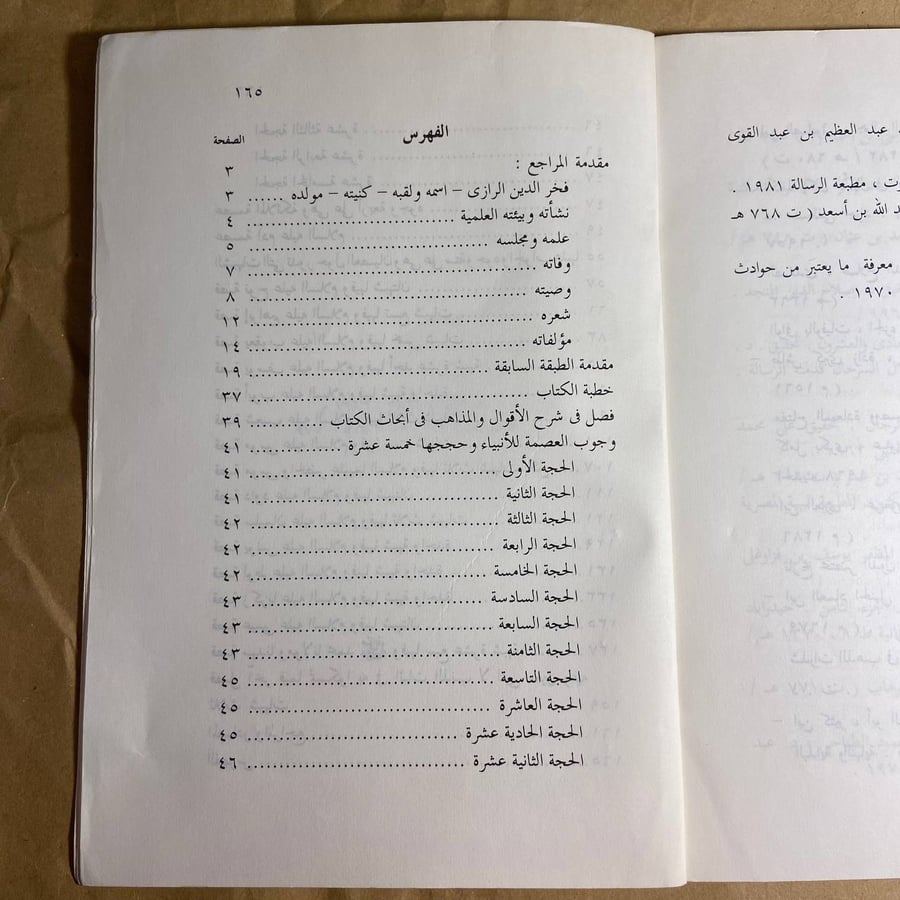 د عبد العظيم بن عبد القوى
وت ، مطبعة الرسالة ١٩٨١ .
د الله بن أسعد ( ت ٧٦٨ هـ
معرفة ما يعتبر من حوادث
١٩٧٠ .
١٦٥
الفهرس
الصفحة
مقدمة المراجع : ٣
فخر الدين الرازى – اسمه ولقبه – كنيته – مولده ...... ٣
نشأته وبيئته العلمية .............................. ٤
علمه ومجلسه .................................. ٥
وفاته ........................................ ٧
وصيته ....................................... ٨
شعره ........................................ ١٢
مؤلفاته ...................................... ١٤
مقدمة الطبقة السابقة .............................. ١٩
خطبة الكتاب .................................... ٣٧
فصل فى شرح الأقوال والمذاهب فى أبحاث الكتاب ........... ٣٩
وجوب العصمة للأنبياء وحججها خمسة عشرة .............. ٤١
الحجة الأولى .................................. ٤١
الحجة الثانية .................................. ٤١
الحجة الثالثة .................................. ٤٢
الحجة الرابعة .................................. ٤٢
الحجة الخامسة ................................ ٤٢
الحجة السادسة ................................ ٤٣
الحجة السابعة ................................. ٤٣
الحجة الثامنة .................................. ٤٣
الحجة التاسعة ................................. ٤٥
الحجة العاشرة ................................. ٤٥
الحجة الحادية عشرة ............................. ٤٥
الحجة الثانية عشرة .............................. ٤٦